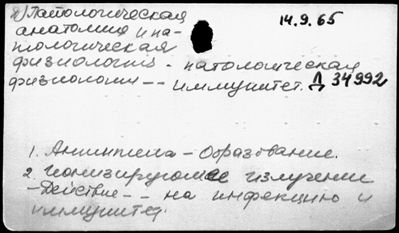 2) Патологическая 14.9.65
анатомия и па-
тологическая
физиология - патологическая
физиология -- иммунитет. Д 34992
1. Антитела - Образование.
2. Ионизирующее излучение
- Действие - - на инфекцию и
иммунитет.